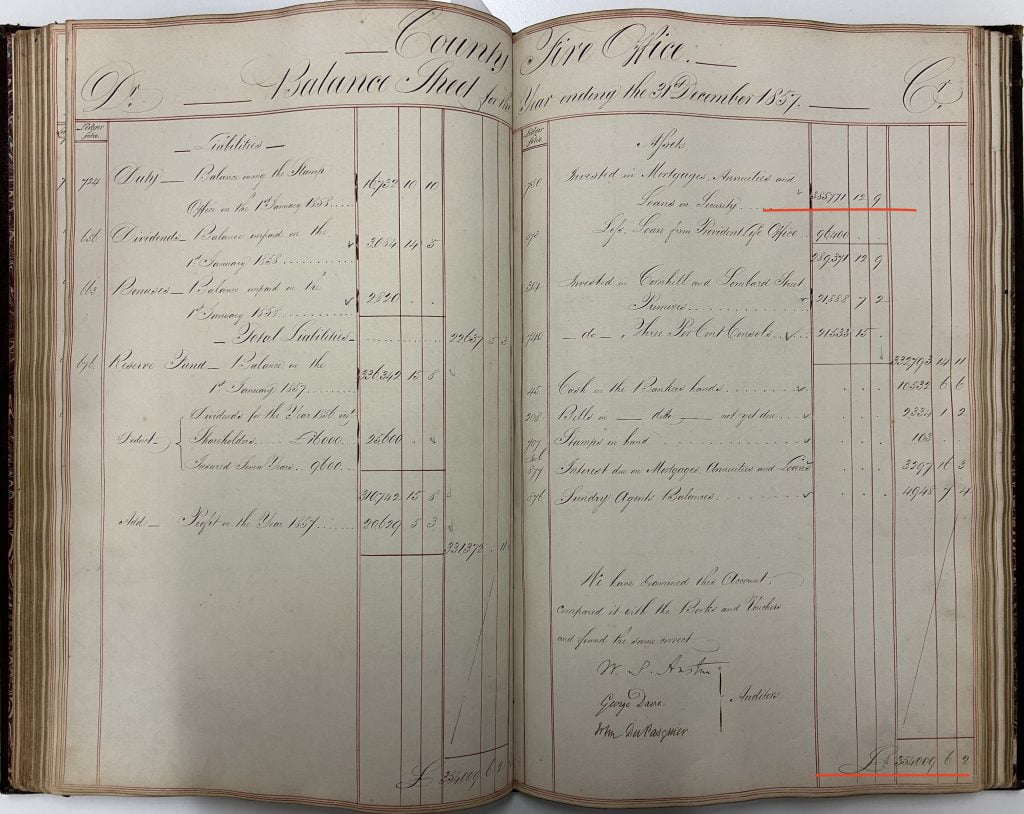 County Fire Office.
Dr. Balance Sheet for the Year ending the 31st December 1857. Cr.
Ledger folio.
Liabilities
724 Duty — Balance owing the Stamp
Office on the 1st January 1858 16732 10 10
656 Dividends — Balance unpaid on the
1st January 1858 3084 14 5
663 Bonuses — Balance unpaid on the
1st January 1858 2820 . .
Total Liabilities 22637 5 3
696 Reserve Fund — Balance on the
1st January 1857 336342 15 8
Dividends for the Year 1856 viz
Deduct Shareholders £16000 25600 . .
Insured Seven Years 9600
310,742 15 8
Add — Profit in the Year 1857 20629 5 3
331372 . 11
£ 354009 6 2
Ledger folio.
Assets
730 Invested in Mortgages, Annuities and
Loans on Security 385771 12 9
673 Less, Loan from Provident Life Office 96400 . .
289,371 12 9
384 Invested in Cornhill and Lombard Street
Premises 21888 7 2
740 — do — Three Per Cent Consols 21533 15 .
332793 14 11
45 Cash in the Bankers hands 10532 6 6
208 Bills in — ditto — not yet due 2334 1 2
707 Stamps in hand 103 . .
677 Interest due on Mortgages, Annuities and Loans 3297 16 3
676 Sundry Agents Balances 4948 7 4
We have Examined this Account,
compared it with the Books and Vouchers
and found the same correct.
W. S. Austin
George Dacre Auditors
John Du Pasquier
£ 354009 6 2